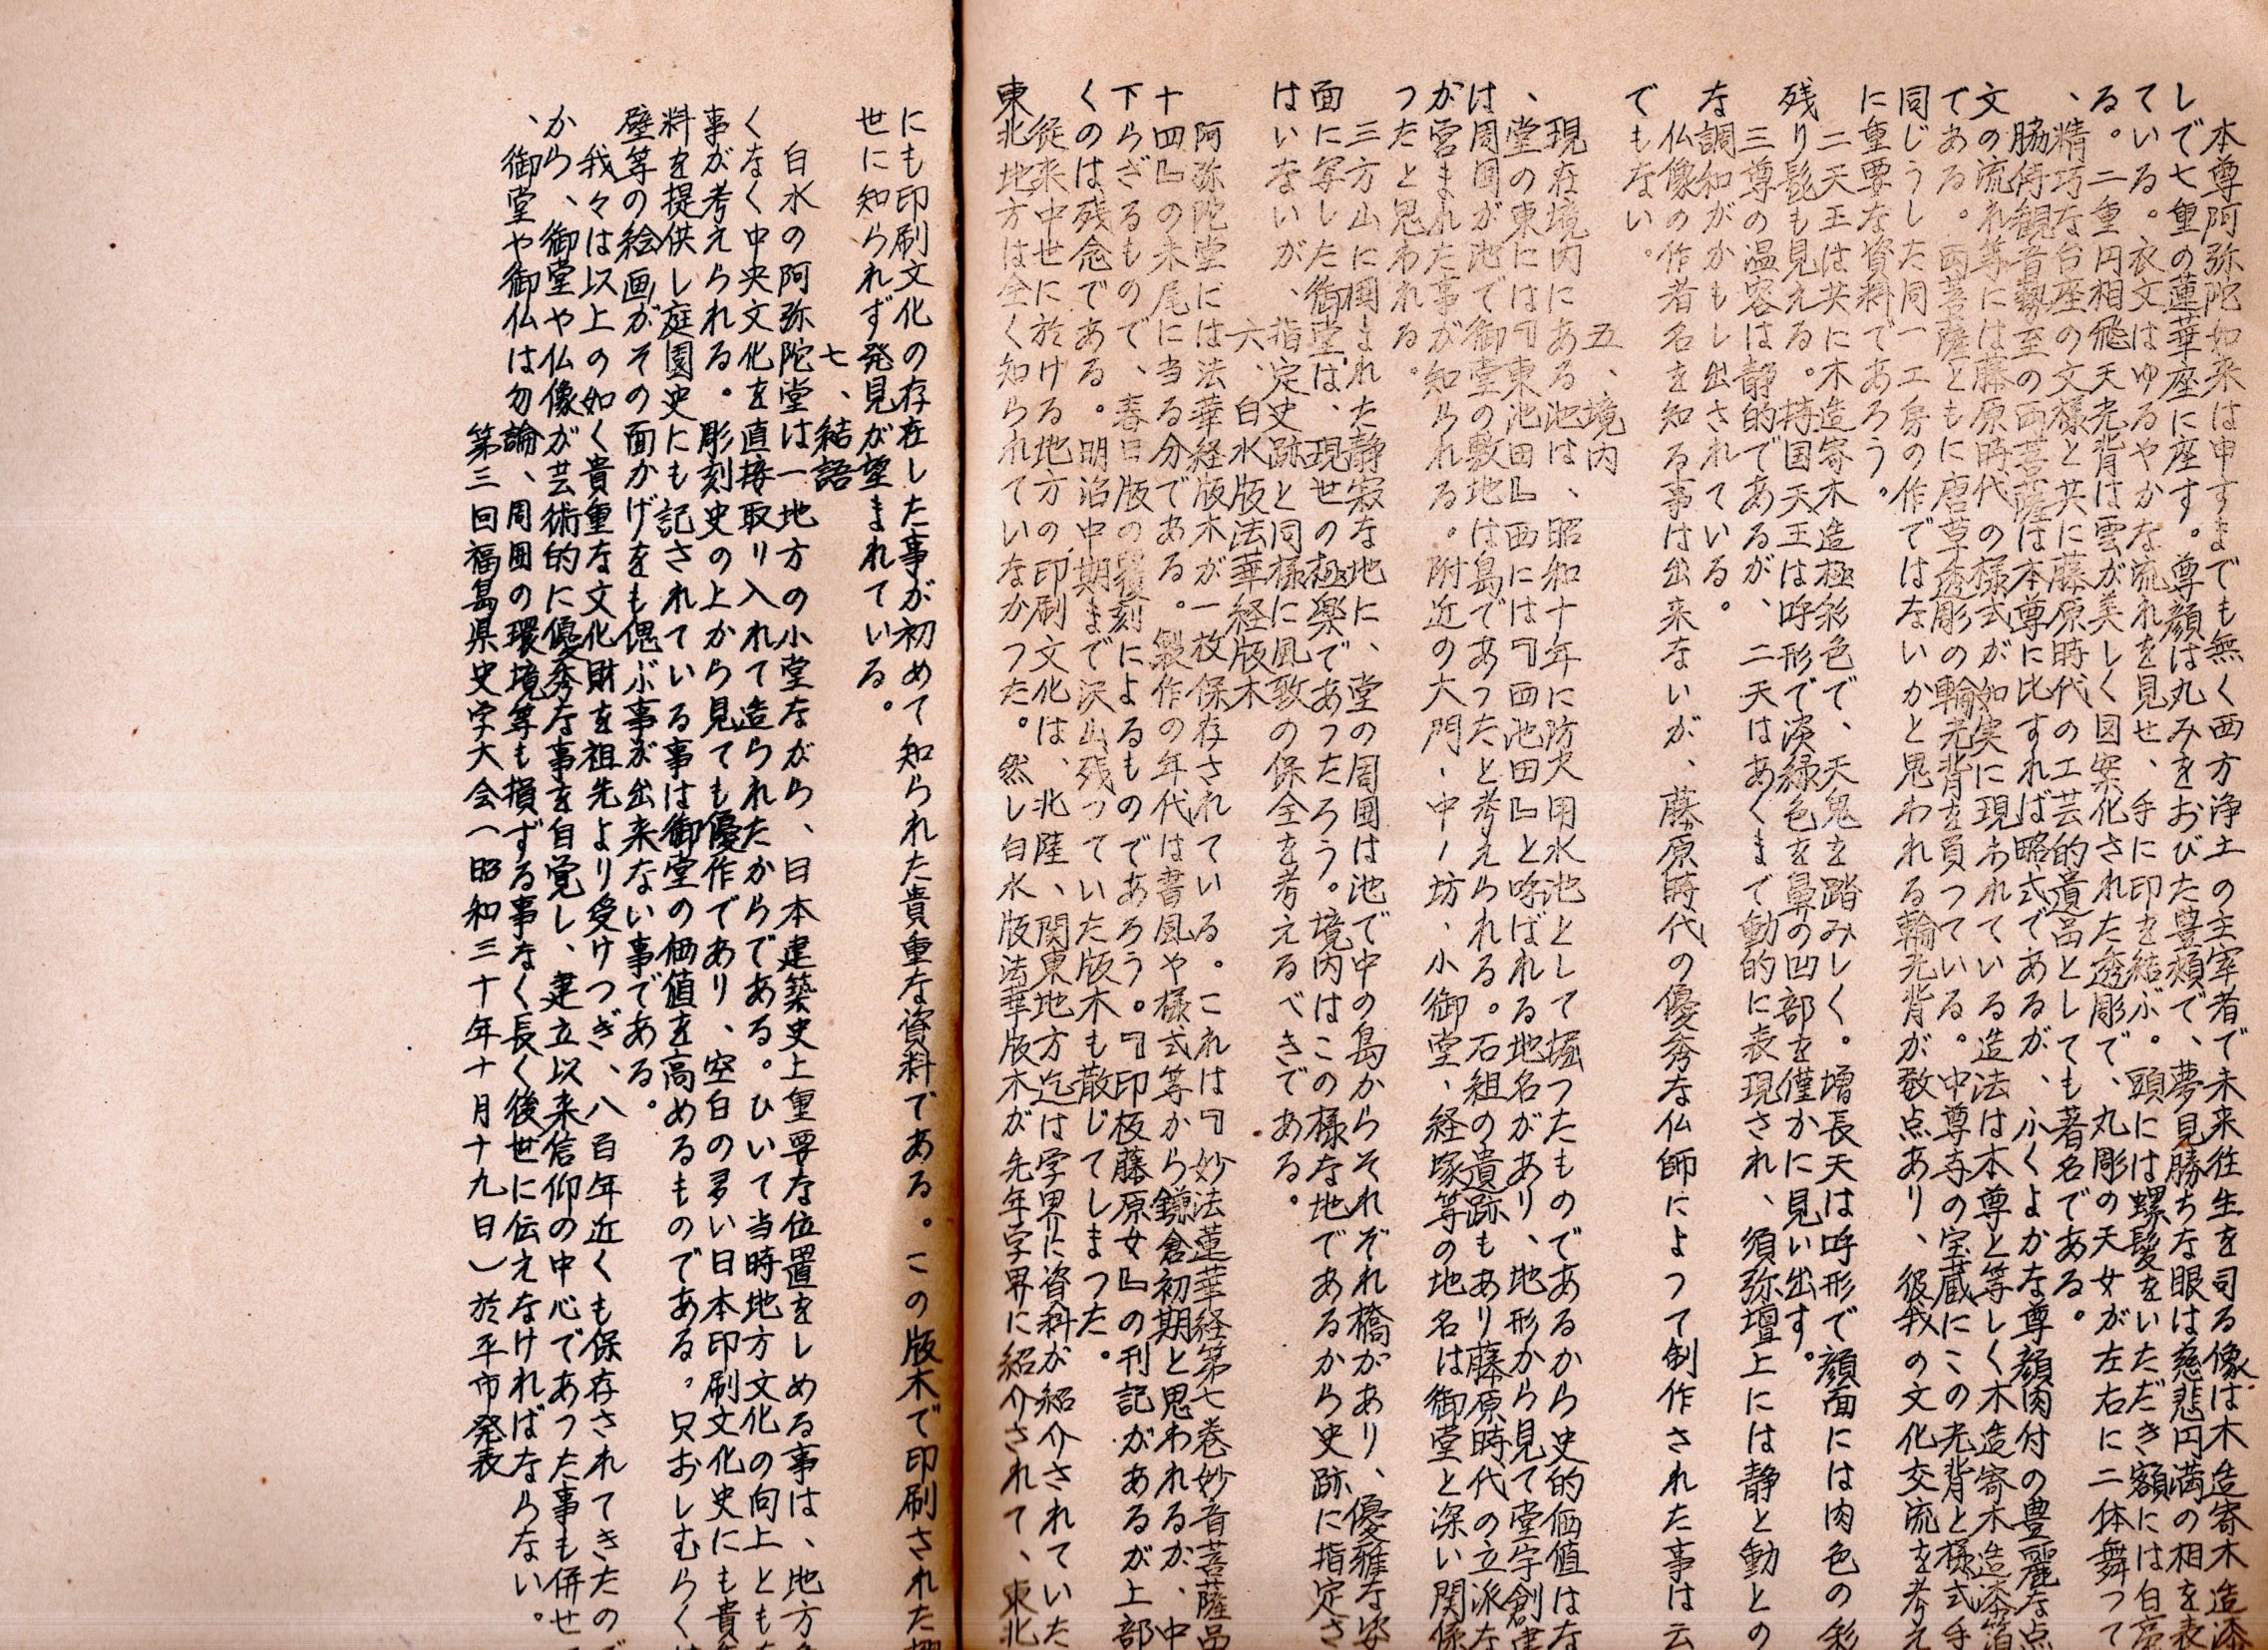 本尊阿弥陀如来は申すまでも無く西方浄土の主宰者で未来往生を司る像は木造寄木造漆
しで七重の蓮華座に座す。尊顔は丸みをおびた豊頬で、夢見勝ちな眼は慈悲円満の相を表
ている。衣文はゆるやかな流れを見せ、手に印を結ぶ。頭には螺髪をいただき額には白亳
る。二重円相飛天光背は雲が美しく図案化された透彫で、丸彫の天女が左右に二体舞って
、精巧な台座の文様と共に藤原時代の工芸的遺品としても著名である。
脇侍観音勢至の両菩薩は本尊に比すれば略式であるが、ふくよかな尊顔肉付の豊麗な点
文の流れ等には藤原時代の様式が如実に現われている造法は本尊と等しく木造寄木造漆箔
てある。両菩薩ともに唐草透彫の輪光背を負っている。中尊寺の宝蔵にこの光背と様式手
同じうした同一工房の作ではないかと思われる輪光背が数点あり、彼我の文化交流を考え
に重要な資料であろう。
二天王は共に木造寄木造極彩色で、天鬼を踏みしく。増長天は呼形で顔面には肉色の彩
残り髭も見える。持国天王は呼形で淡緑色を鼻の凹部を僅かに見い出す。
三尊の温容は静的であるが、二天はあくまで動的に表現され、須弥壇上には静と動との
な調和がかもし出されている。
仏像の作者名を知る事は出来ないが、藤原時代の優秀な仏師によって制作された事は云
でもない。
五、境内
現在境内にある池は、昭和十年に防火用水池として堀ったものであるから史的価値はな
、堂の東には『東池田』西には『西池田』と呼ばれる地名があり、地形から見て堂宇創建
は周囲が池で御堂の敷地は島であったと考えられる。石組の遺跡もあり藤原時代の立派な
が営まれた事が知られる。附近の大門、中ノ坊、小御堂、経塚等の地名は御堂と深い関係
つたと思われる。
三方山に囲まれた静寂な地に、堂の周囲は池で中の島からそれぞれ橋があり、優雅な姿
面に写した御堂は、現世の極楽であったろう。境内はこの様な地であるから史跡に指定さ
はいないが、指定史跡と同様に風致の保全を考えるべきである。
六、白水版法華経版木
阿弥陀堂には法華経版木が一枚保存されている。これは『妙法蓮華経第七巻妙音菩薩品
十四』の末尾に当る分である。製作の年代は書風や様式等から鎌倉初期と思われるが、中
下らざるもので、春日版の覆刻によるものであろう。『印板藤原女』の刊記があるが上部
くのは残念である。明治中期まで沢山残っていた版木も散じてしまった。
従来中世に於ける地方の印刷文化は、北陸、関東地方迄は学界に資料が紹介されていた
東北地方は全く知られていなかった。然し白水版法華版木が先年学界に紹介されて、東北
にも印刷文化の存在した事が初めて知られた貴重な資料である。この版木で印刷された
世に知られず発見が望まれている。
七、結語
白水の阿弥陀堂は一地方の小堂ながら、日本建築史上重要な位置をしめる事は、地方
くなく中央文化を直接取り入れて造られたからである。ひいて当時地方文化の向上とも
事が考えられる。彫刻史の上から見ても優作であり、空白の多い日本印刷文化史にも貴
料を提供し庭園史にも記されている事は御堂の価値を高めるものである。只おしむらくは
壁等の絵画がその面かげをも偲ぶ事が出来ない事である。
我々は以上の如く貴重な文化財を祖先より受けつぎ、八百年近くも保存されてきたので
から、御堂や仏像が芸術的に優秀な事を自覚し、建立以来信仰の中心であった事も併せ
、御堂や御仏は勿論、周囲の環境等も損ずる事なく長く後世に伝えなければならない。
第三回福島県史学大会（昭和三十年十月十九日）於平市発表